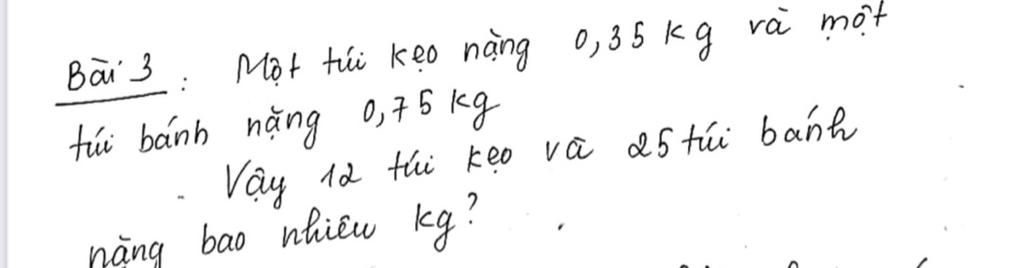 Bài 3 : Một túi kẹo nặng 0,35 kg và một
túi bánh nặng 0,75 kg
- Vậy 12 túi kẹo và 25 túi bánh
nặng bao nhiêu kg?